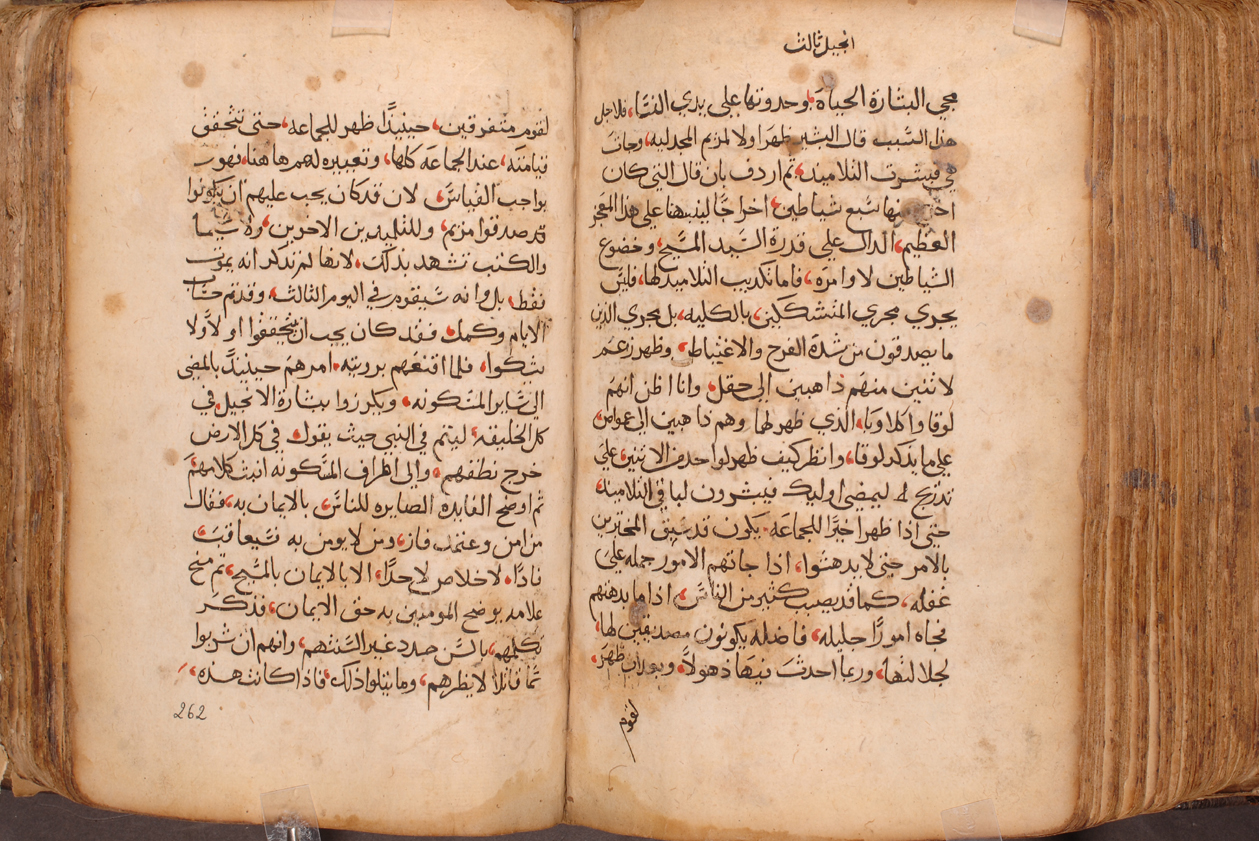 انجيل ثالث
مجي البشارة الحياة، وحدوثها على يدي النسا، فلاجل
هذا السبب قال البشير ظهرا ولا لمريم المجدليه، وجات
هي فبشرت التلاميذ، ثم اردف بان قال التي كان
منها سبع شياطين، اخراجًا لينبهنا على هذا المعجز
العظيم، الدال على قدرة السيد المسيح، وخضوع
الشياطين لاوامره، فاما تكذيب التلاميذ لها، فليس
يجري مجري المتشككين، بالكليه، بل مجري الذين
ما يصدقون من شدة الفرح والاغتباط، وظهر زعم
لاثنين منهم ذاهبين الى حقل، وانا اظن انهم
لوقا واكلاوبا، الذي ظهر لهما وهم ذاهبين الى عمواص
على ما يذكر لوقا، وانظر كيف ظهر لواحد من الاثنين، على
تدريج له ليمضي اوليك فيبشرون لباقي التلاميذ،
حتى اذا ظهر اخرًا للجماعة، يكون قد سبق المخبرين
بالامر حتى لا يدهشوا، اذا جاتهم الامور جمله على
غفله، كما قد يصيب كثير من الناس، اذا ما بدهتهم
فجاه امورًا جليله، فاضله يكونون مصدقين لها،
لجلالتها، وربما احدثت فيها ذهولاً، وبعد ان ظهر،
لقوم
لقوم متفرقين، حينيذًا ظهر للجماعه، حتى تتحقق
قيامته، عند الجماعه كلها، وتعييره لهم هاهنا، فهو
بواجب القياس، لان قد كان يجب عليهم ان يكونوا
قد صدقوا مريم، وللتلميذين الاخرين، ولا سيما
والكتب تشهد بذلك، لانها لم تذكر انه يموت
فقط، بل وانه سيقوم في اليوم الثالث، وقدم حساب
الايام وكملت، فقد كان يجب ان يتحققوا اولا ولا
يشكوا، فلما اقنعهم برويته، امرهم حينيذًا بالمضي
الى ساير المسكونه، ويكرزوا بشارة الانجيل في
كل الخليقه، ليتم في النبي حيث يقول، في كل الارض
خرج نطقهم، والى اطراف المسكونه انبث كلامهم،
ثم اوضح الفايده الصايره للناس، بالايمان به، فقال
من امن وعتمد، فاز، ومن لا يومن به فسيعاقب،
فاذًا، لا خلاص لاحدًا، الا بالايمان بالمسيح، ثم منح
علامه يوضح المومنين به حق الايمان، فذكر
تكلمهم، بالسن جدد غير السنتهم، وانهم ان شربوا
سمًا قاتلاً لا يضرهم، وما يتلوا ذلك، فاذا كانت هذه،
262